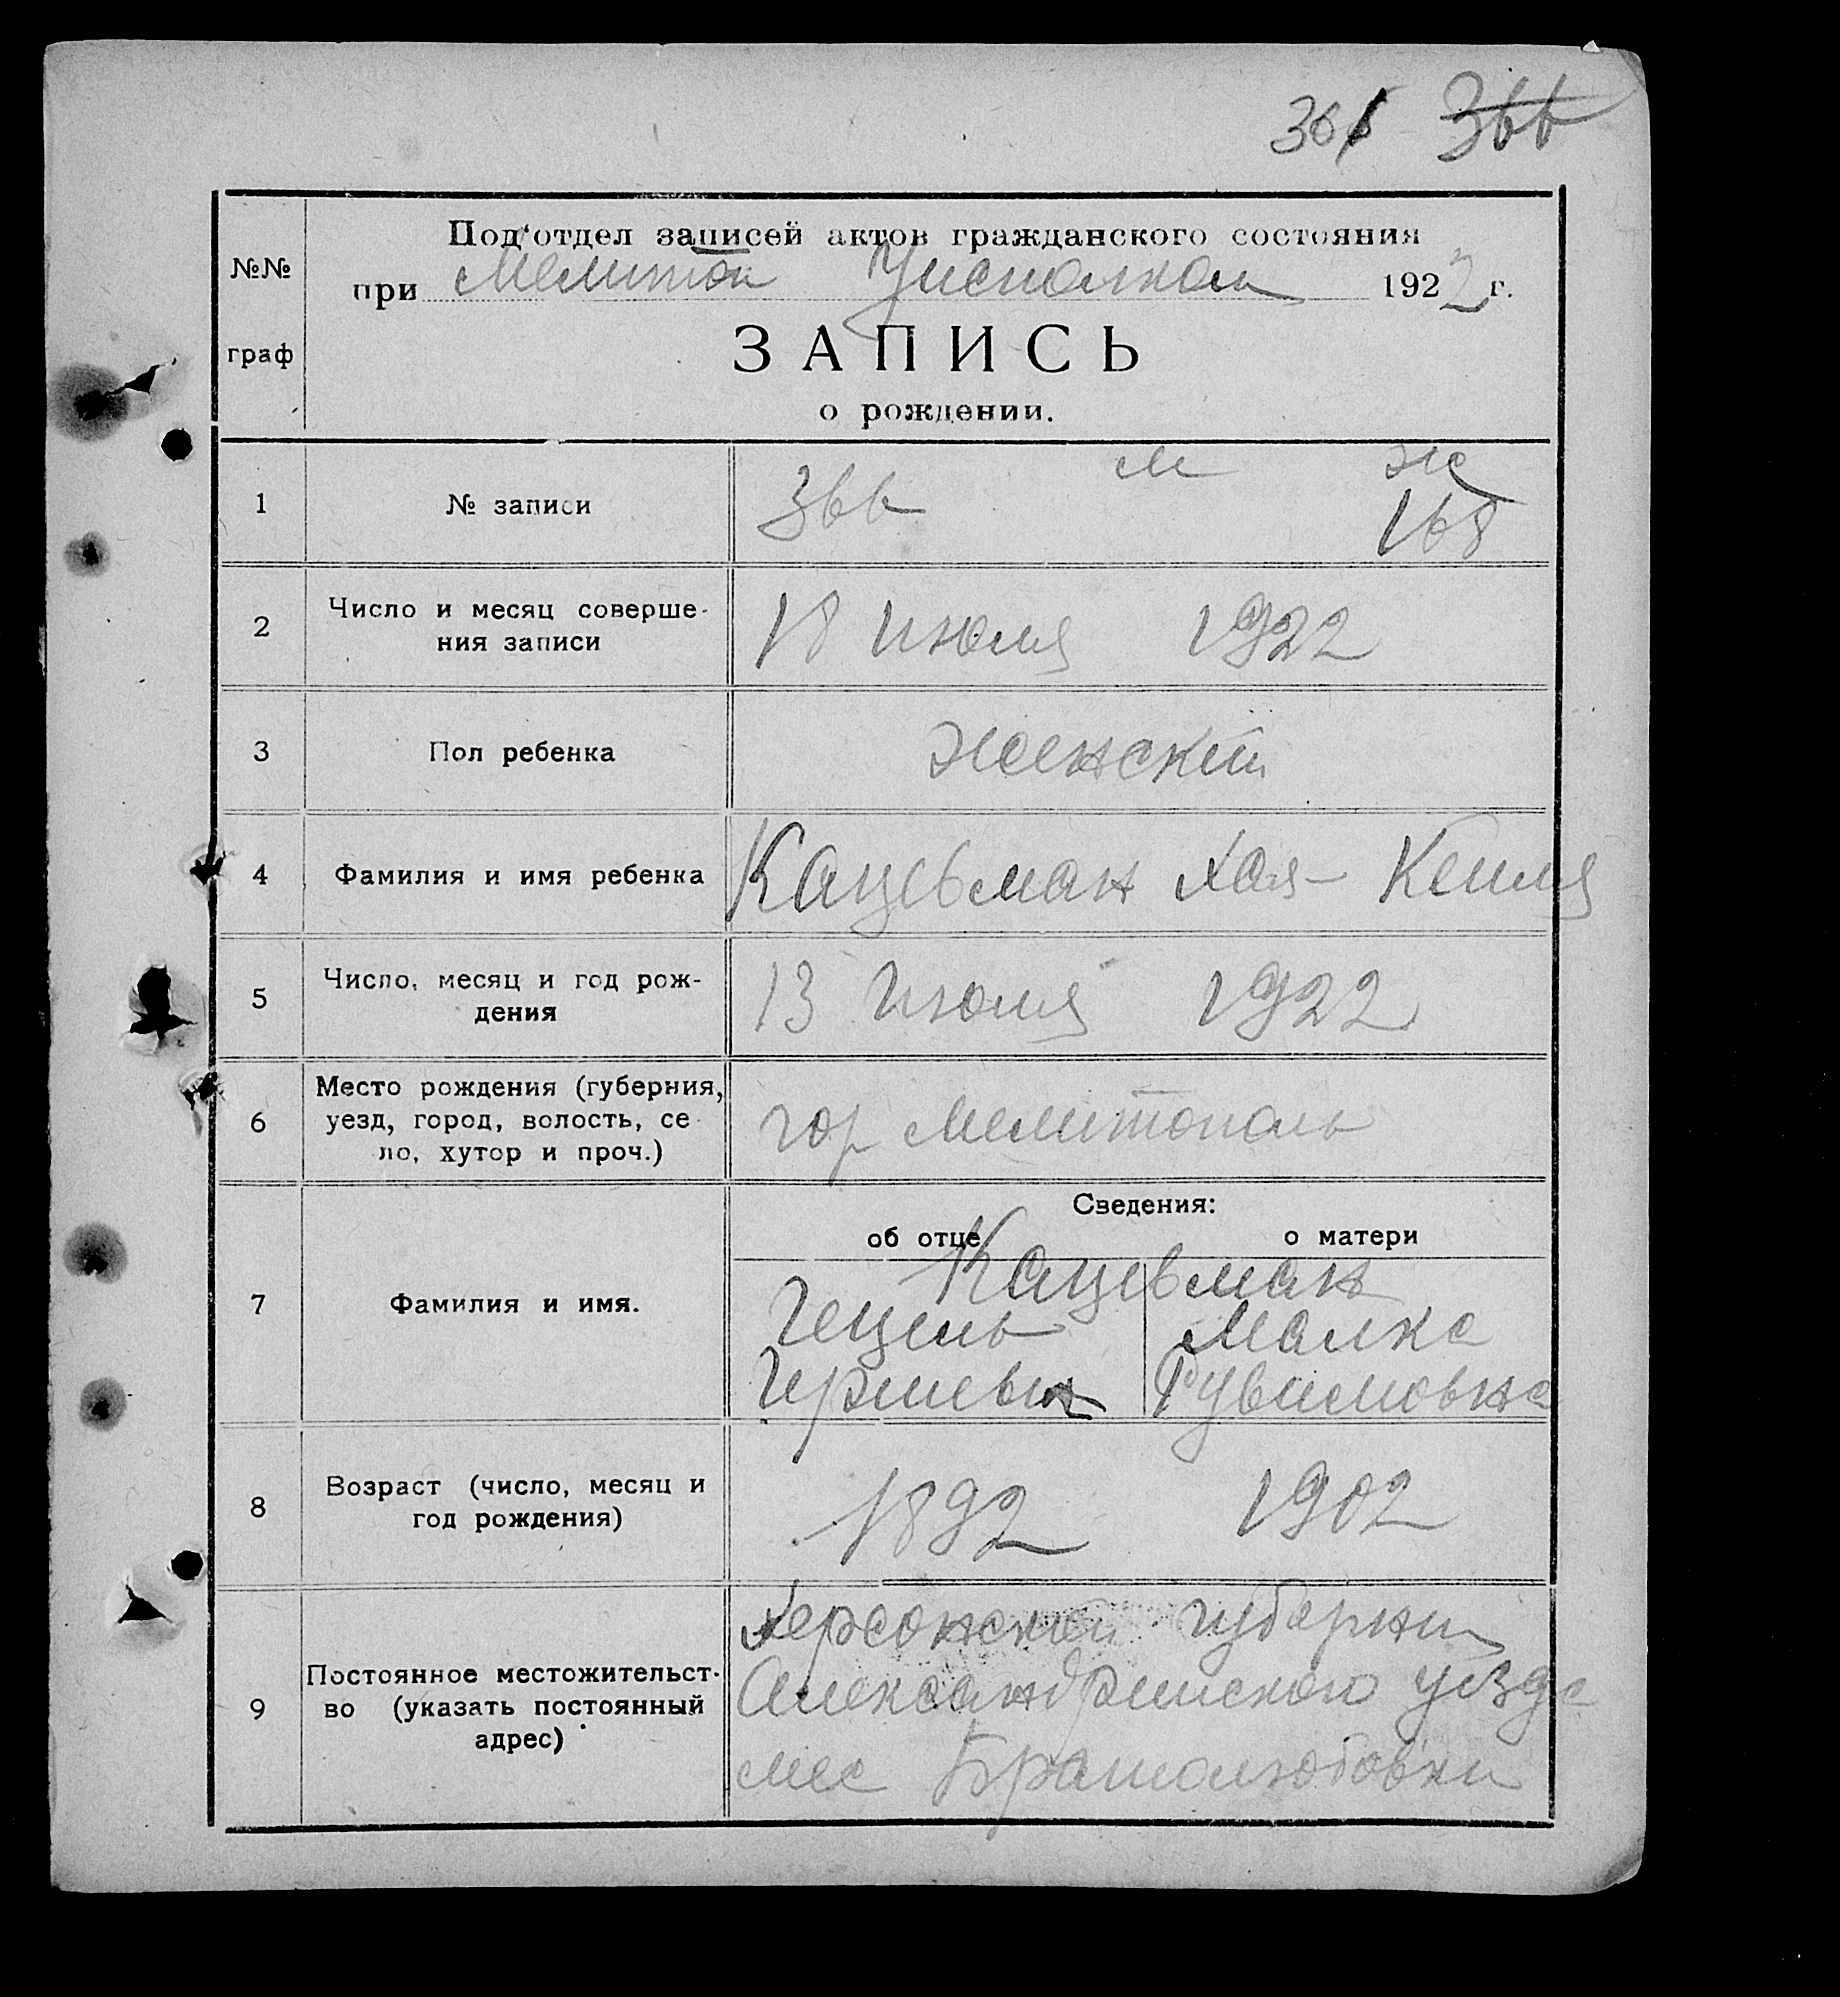 366
Под'отдел записей актов гражданского состояния
№№ при Мелитоп Уисполком 1922 г.
граф ЗАПИСЬ
о рождении.
м ж
1 № записи 366 168
2 Число и месяц соверше-
ния записи 18 июля 1922
3 Пол ребенка женский
4 Фамилия и имя ребенка Кацевман Хая-Кейля
5 Число, месяц и год рож-
дения 13 июля 1922
6 Место рождения (губерния,
уезд, город, волость, се-
ло, хутор и проч.) гор Мелитополь
Сведения:
об отце о матери
Кацевман
7 Фамилия и имя. Гецель Малка
Гершевич Рувимовна
8 Возраст (число, месяц и
год рождения) 1892 1902
9 Постоянное местожительст-
во (указать постоянный
адрес)
Херсонской губернии
Александрийского уезда
мес Братолюбовки